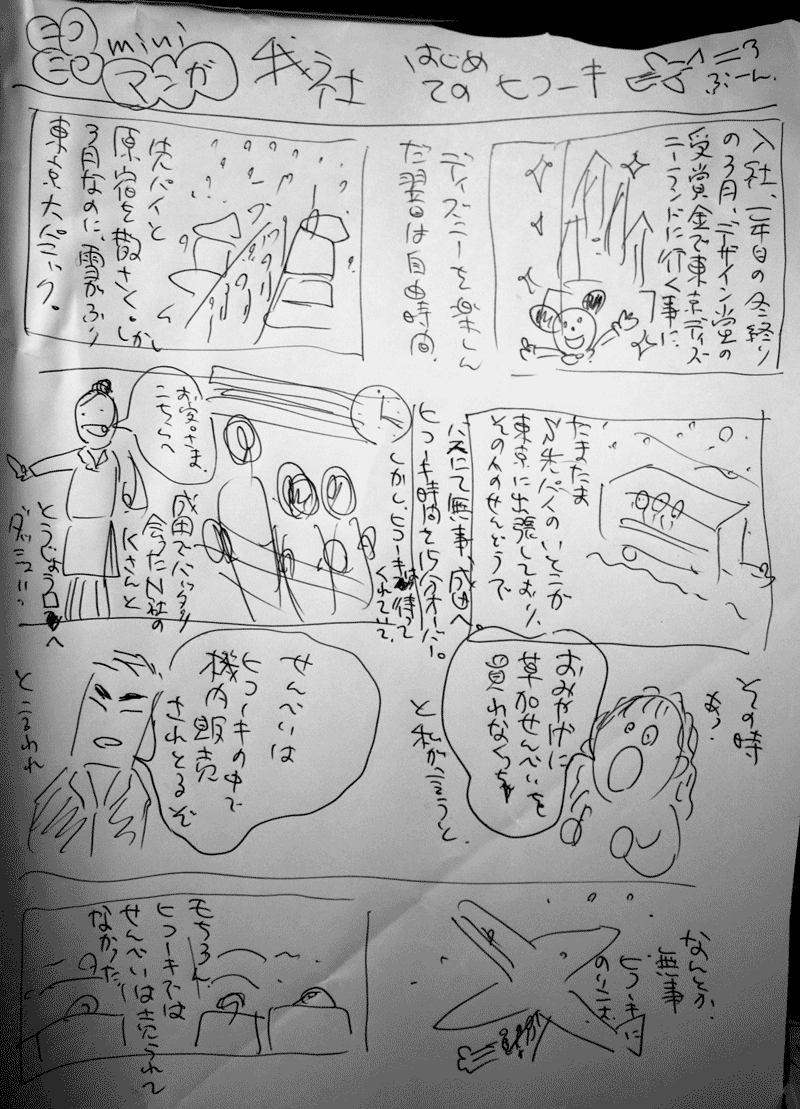 ヨコ
ヨコ
mini
マンガ
我社
はじめ
ての
ヒコーキ
ぶーん
入社、一年目の冬終り
の3月、デザイン堂の
受賞金で東京ディズ
ニーランドに行く事に
ディズニーを楽しん
だ翌日は自由時間、
先パイと
原宿を散さく。しかし
3月なのに、雪がふり
東京大パニック。
たまたま
N先パイのいとこが
東京に出張しており、
その人のせんどうで
バスにて無事、成田へ。
ヒコーキ時間を15分オーバー。
しかし、ヒコーキは待って
くれていて、
お客さま、
こちらへ
成田でバッタリ
会ったN社の
Kさんと
とうじょう口へ
ダッシュ!!
その時
あっ
おみやげに
草加せんべいを
買わなくっちゃ
と私が言うと、
せんべいは
ヒコーキの中で
機内販売
されとるぞ
といわれ
なんとか
無事
ヒコーキに
のりこむ
もちろん
ヒコーキでは
せんべいは売られて
なかった